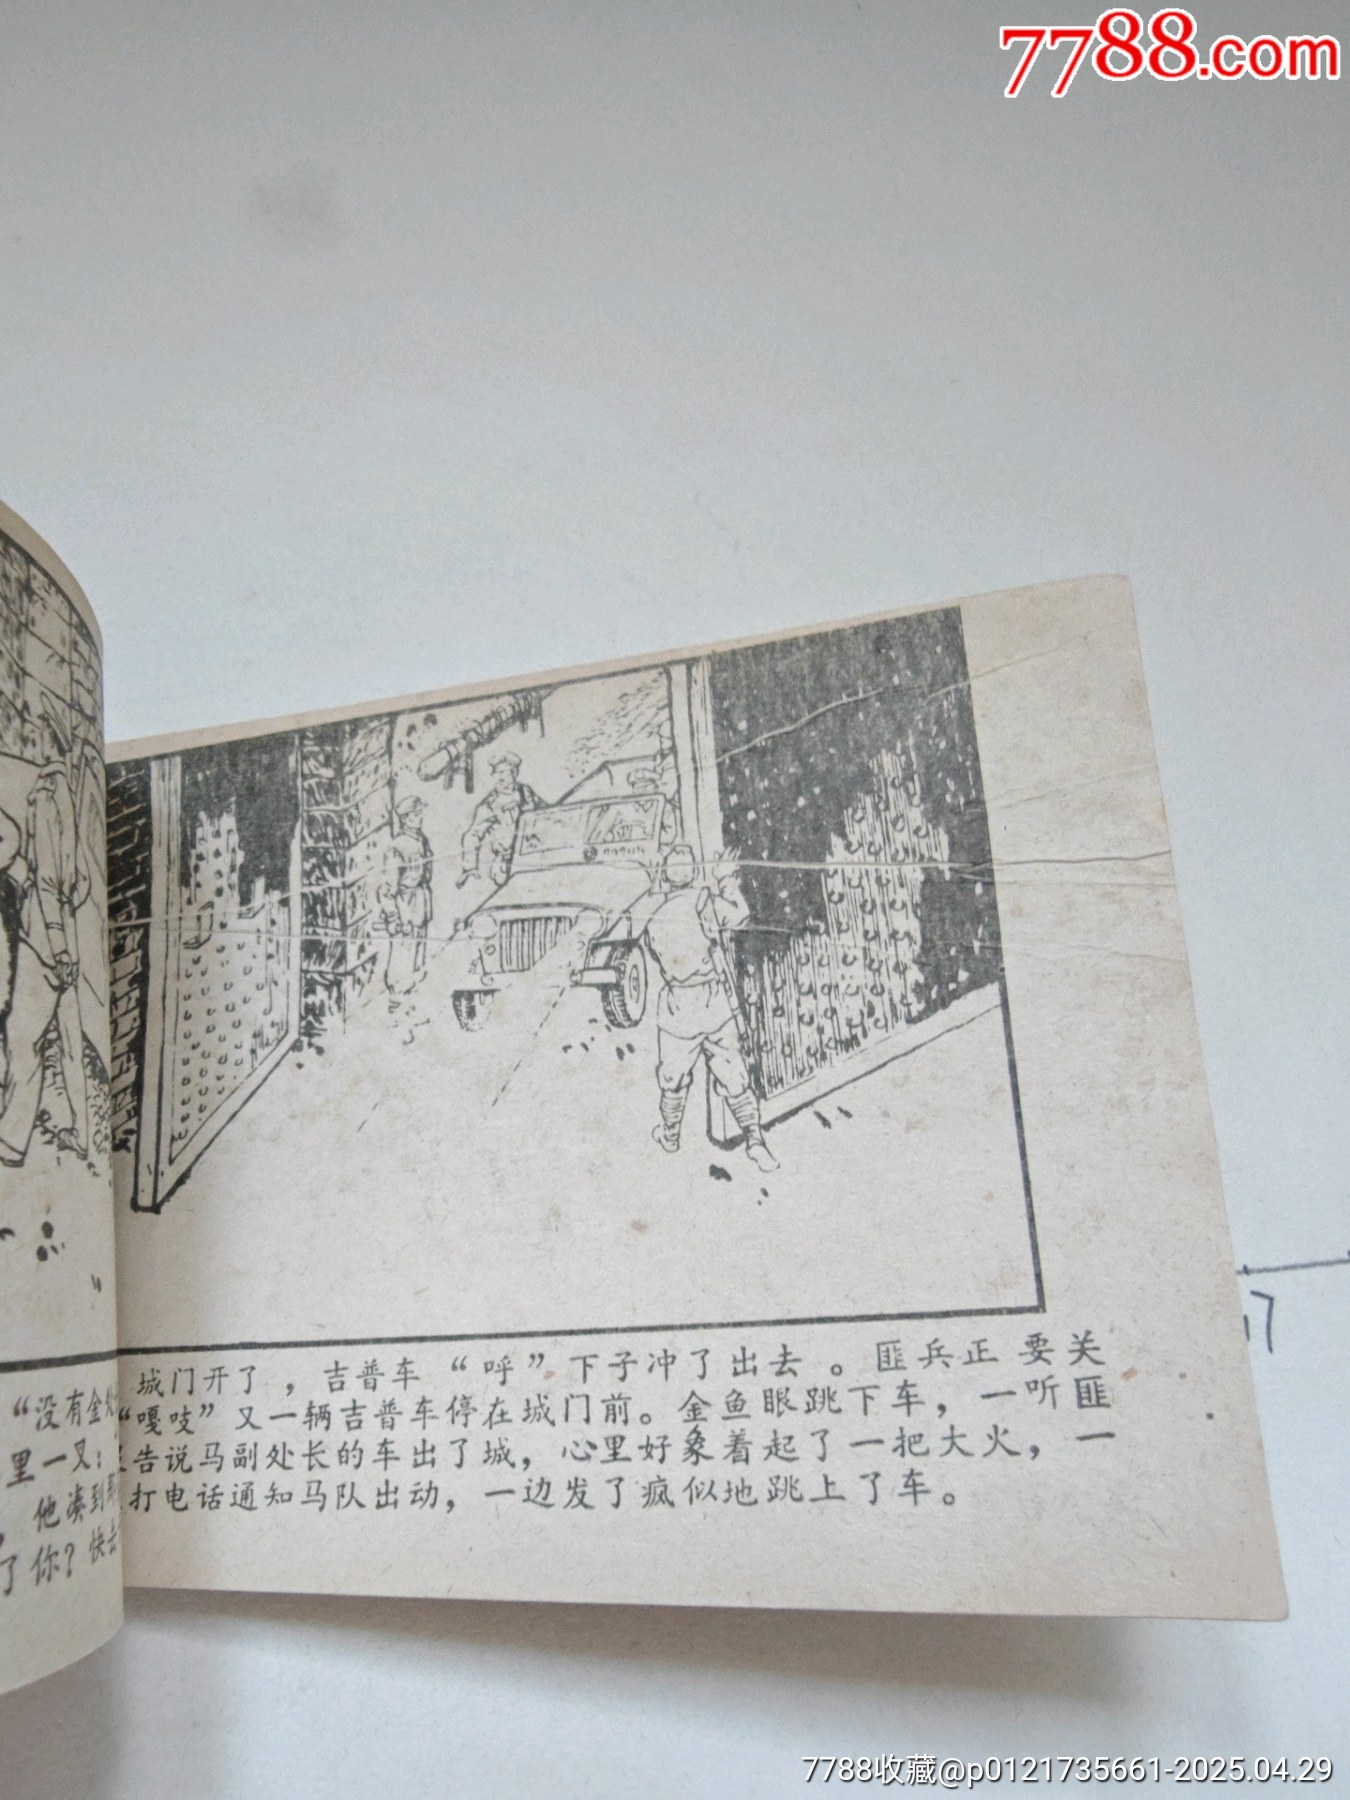 7788.com
“没有金
里一叉：
他凑到
了你？快去
城门开了，吉普车“呼”下子冲了出去。匪兵正要关
“嘎吱”又一辆吉普车停在城门前。金鱼眼跳下车，一听匪
告说马副处长的车出了城，心里好象着起了一把大火，一
打电话通知马队出动，一边发了疯似地跳上了车。
7788收藏@p0121735661-2025.04.29